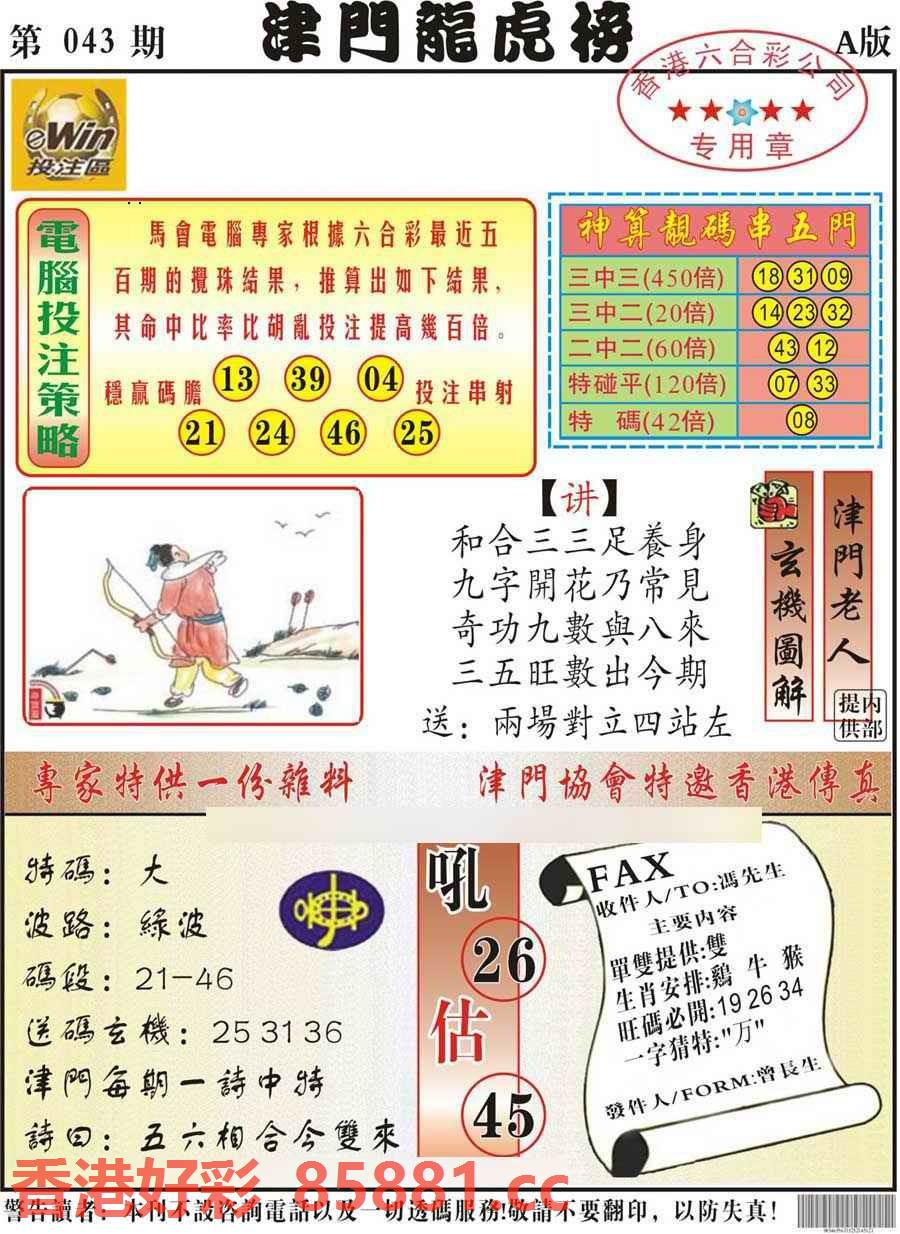 第 043 期
津門龍虎榜
A版
香港六合彩公司
专用章
eWin
投注區
電腦投注策略
馬會電腦專家根據六合彩最近五
百期的攪珠結果，推算出如下結果，
其命中比率比胡亂投注提高幾百倍。
穩贏碼膽 13 39 04 投注串射
21 24 46 25
神算靚碼串五門
三中三(450倍) 18 31 09
三中二(20倍) 14 23 32
二中二(60倍) 43 12
特碰平(120倍) 07 33
特 碼(42倍) 08
【讲】
和合三三足養身
九字開花乃常見
奇功九數與八來
三五旺數出今期
送：兩場對立四站左
玄機圖解
津門老人
內部提供
專家特供一份雜料
津門協會特邀香港傳真
特碼：大
波路：綠波
碼段：21-46
送碼玄機：25 31 36
津門每期一詩中特
詩曰：五六相合今雙來
吼
26
估
45
FAX
收件人/TO:馮先生
主要内容
單雙提供:雙
生肖安排:鷄 牛 猴
旺碼必開:19 26 34
一字猜特:"万"
發件人/FORM:曾長生
香港好彩 85881.cc
警告讀者：本刊不設咨詢電話以及一切透碼服務!敬請不要翻印，以防失真!